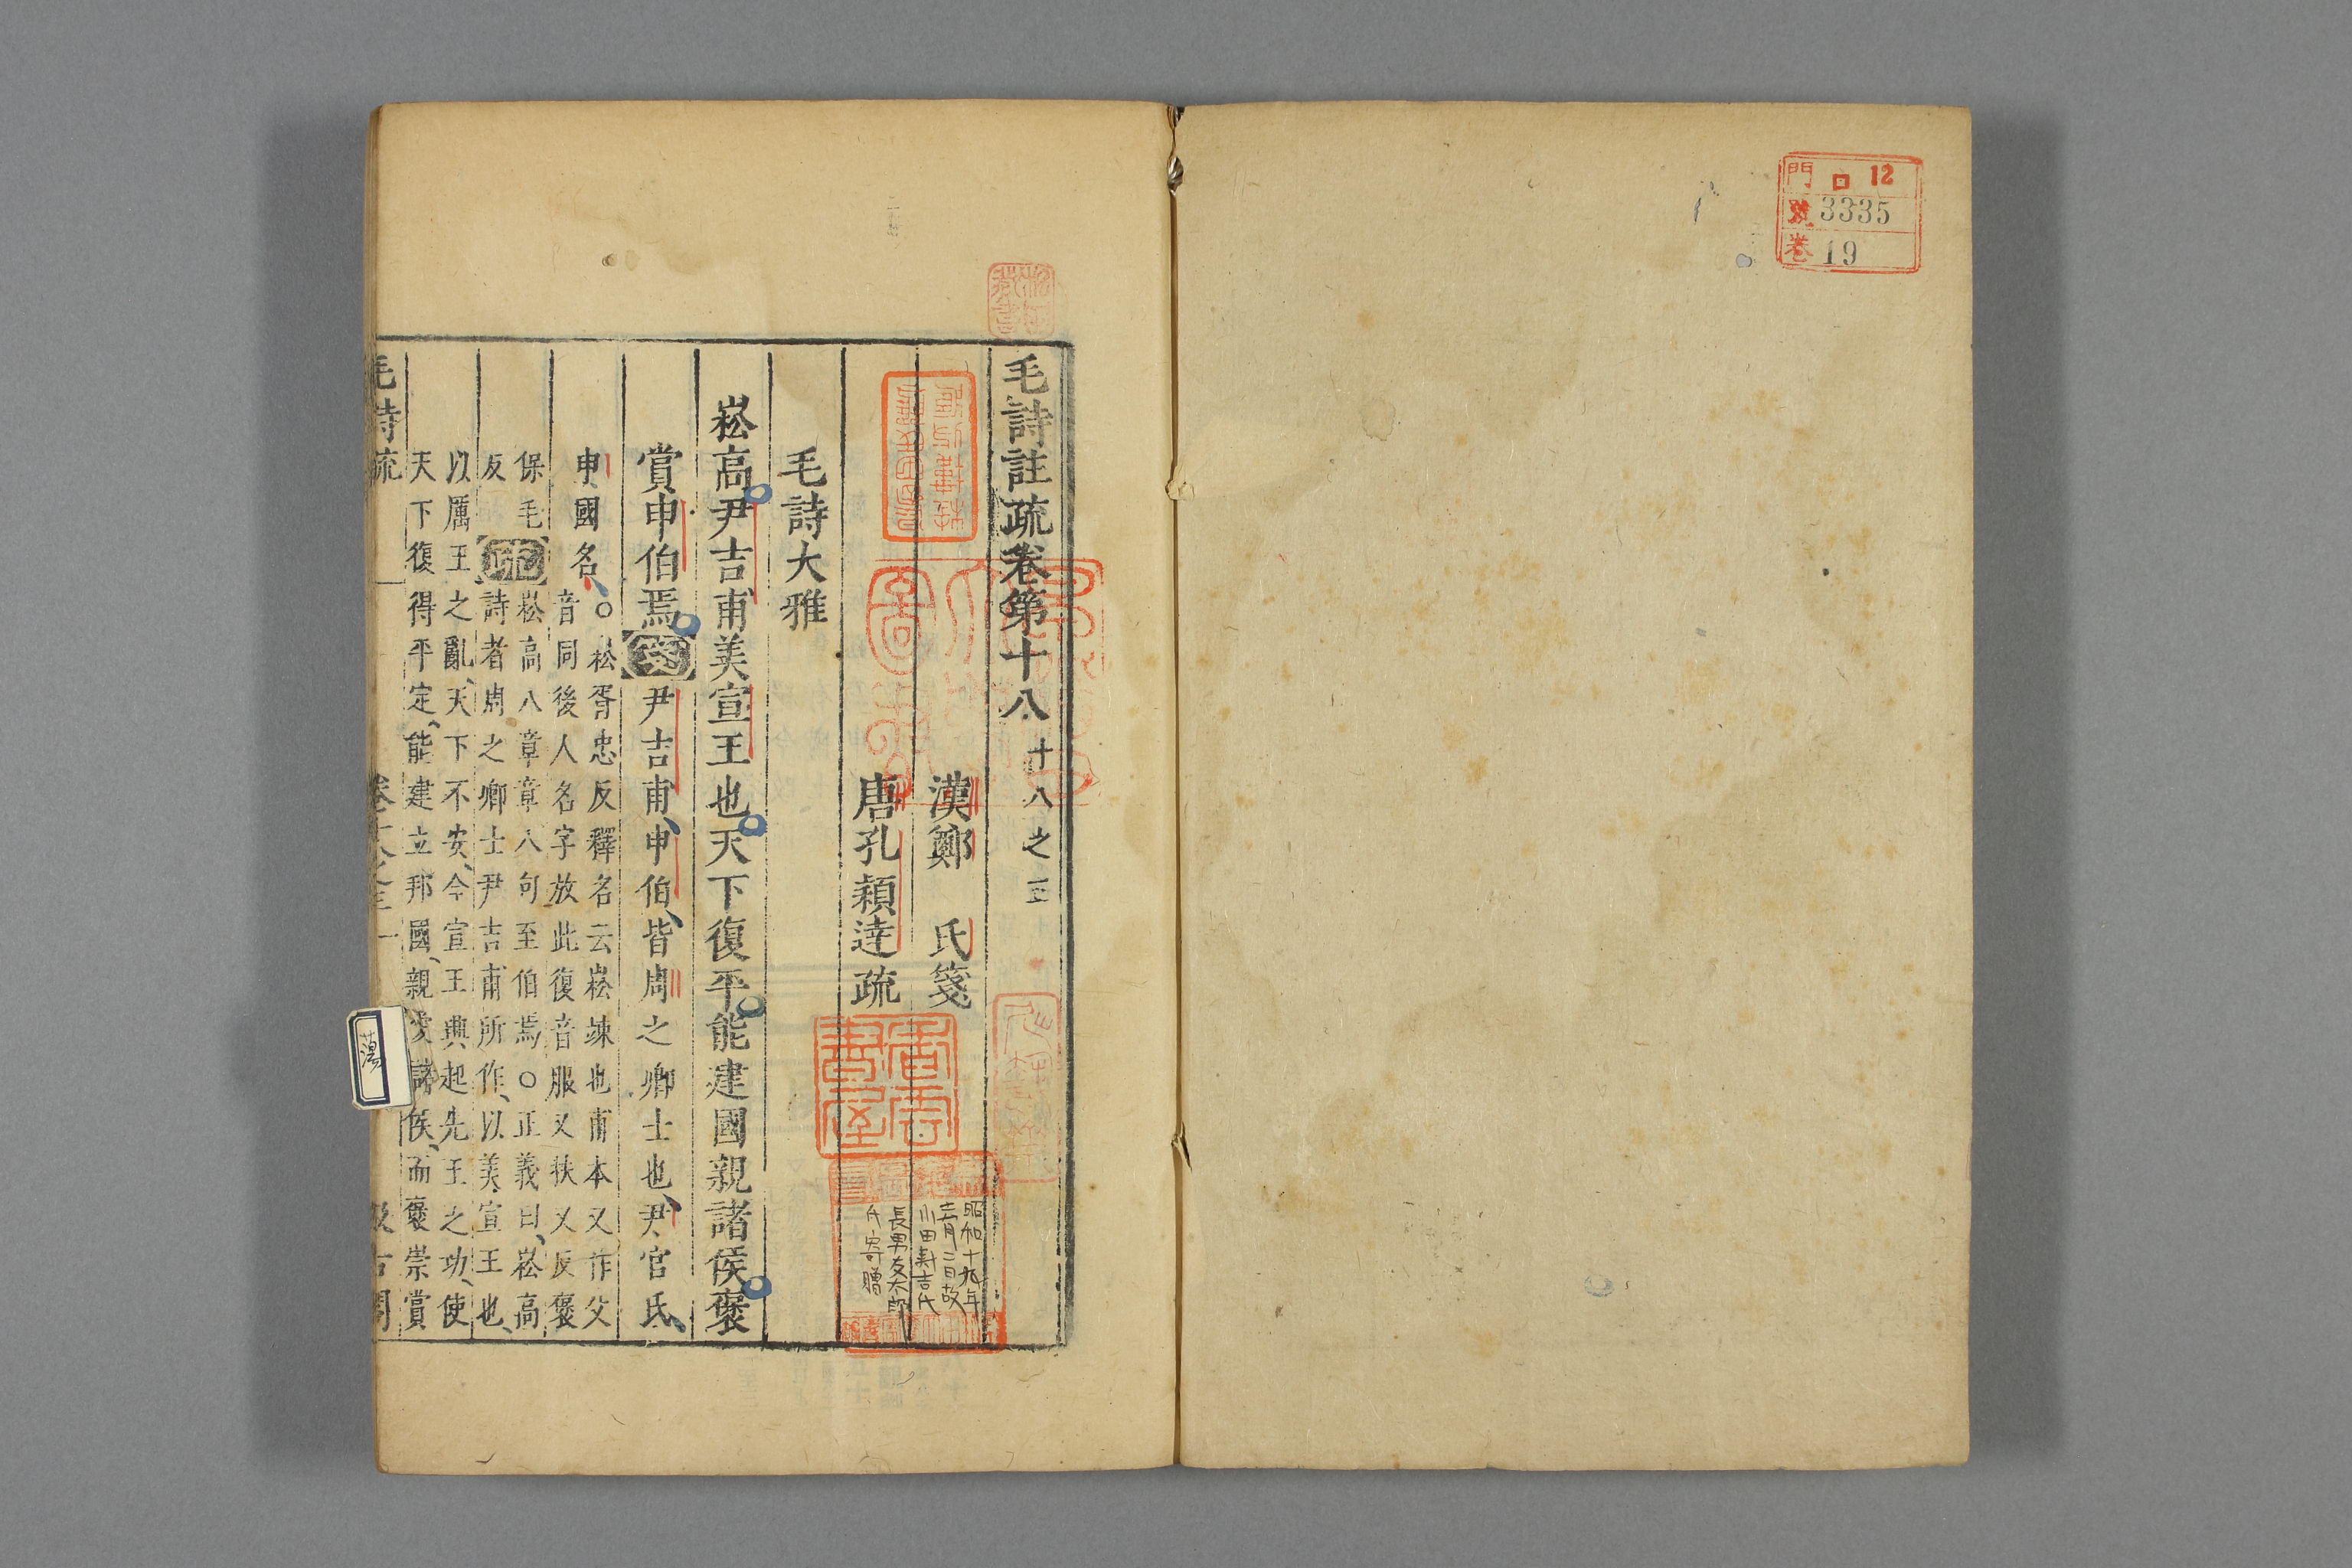 門 ロ 12
號 3335
卷 19
毛詩註疏卷第十八 十八之三
漢鄭 氏箋
唐孔穎達疏
毛詩大雅
崧高尹吉甫美宣王也天下復平能建國親諸侯褒
賞申伯焉箋尹吉甫申伯皆周之卿士也尹官氏
申國名○崧胥忠反釋名云崧竦也甫本又作父
音同後人名字放此復音服又扶又反褒
保毛反疏崧高八章章八句至伯焉○正義曰崧高
詩者周之卿士尹吉甫所作以美宣王也
以厲王之亂天下不安今宣王興起先王之功使
天下復得平定能建立邦國親諸侯而褒崇賞
毛詩疏
卷十八之三 一
汲古閣
昭和十九年
二日故
小田壽吉氏
長男友太郎
氏寄贈
香雲書屋
蕩